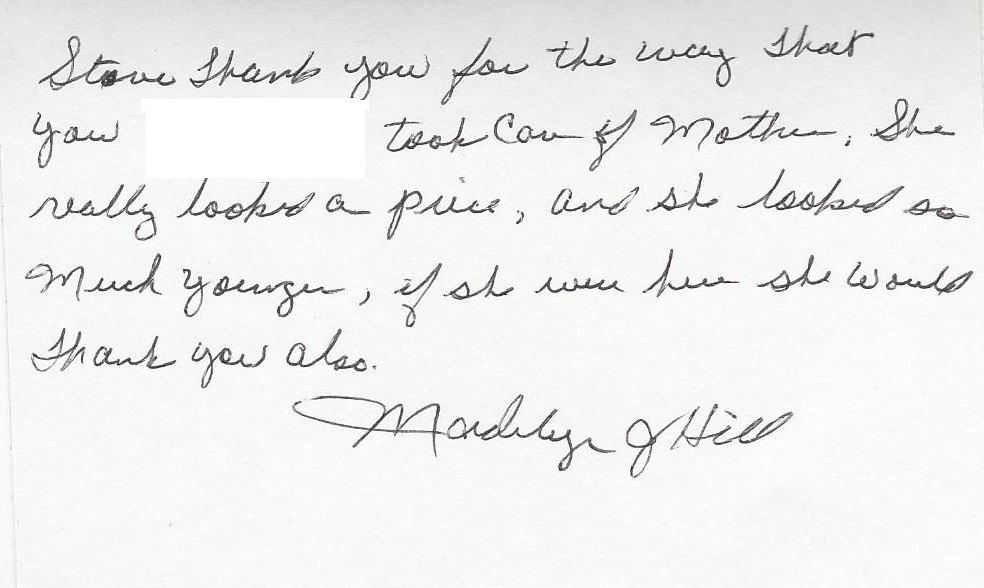 Steve Thank you for the way that
you took Care of Mother, She
really looked a piece, and she looked so
Much younger, if she were here she would
Thank you also.
Madelyn J Hill